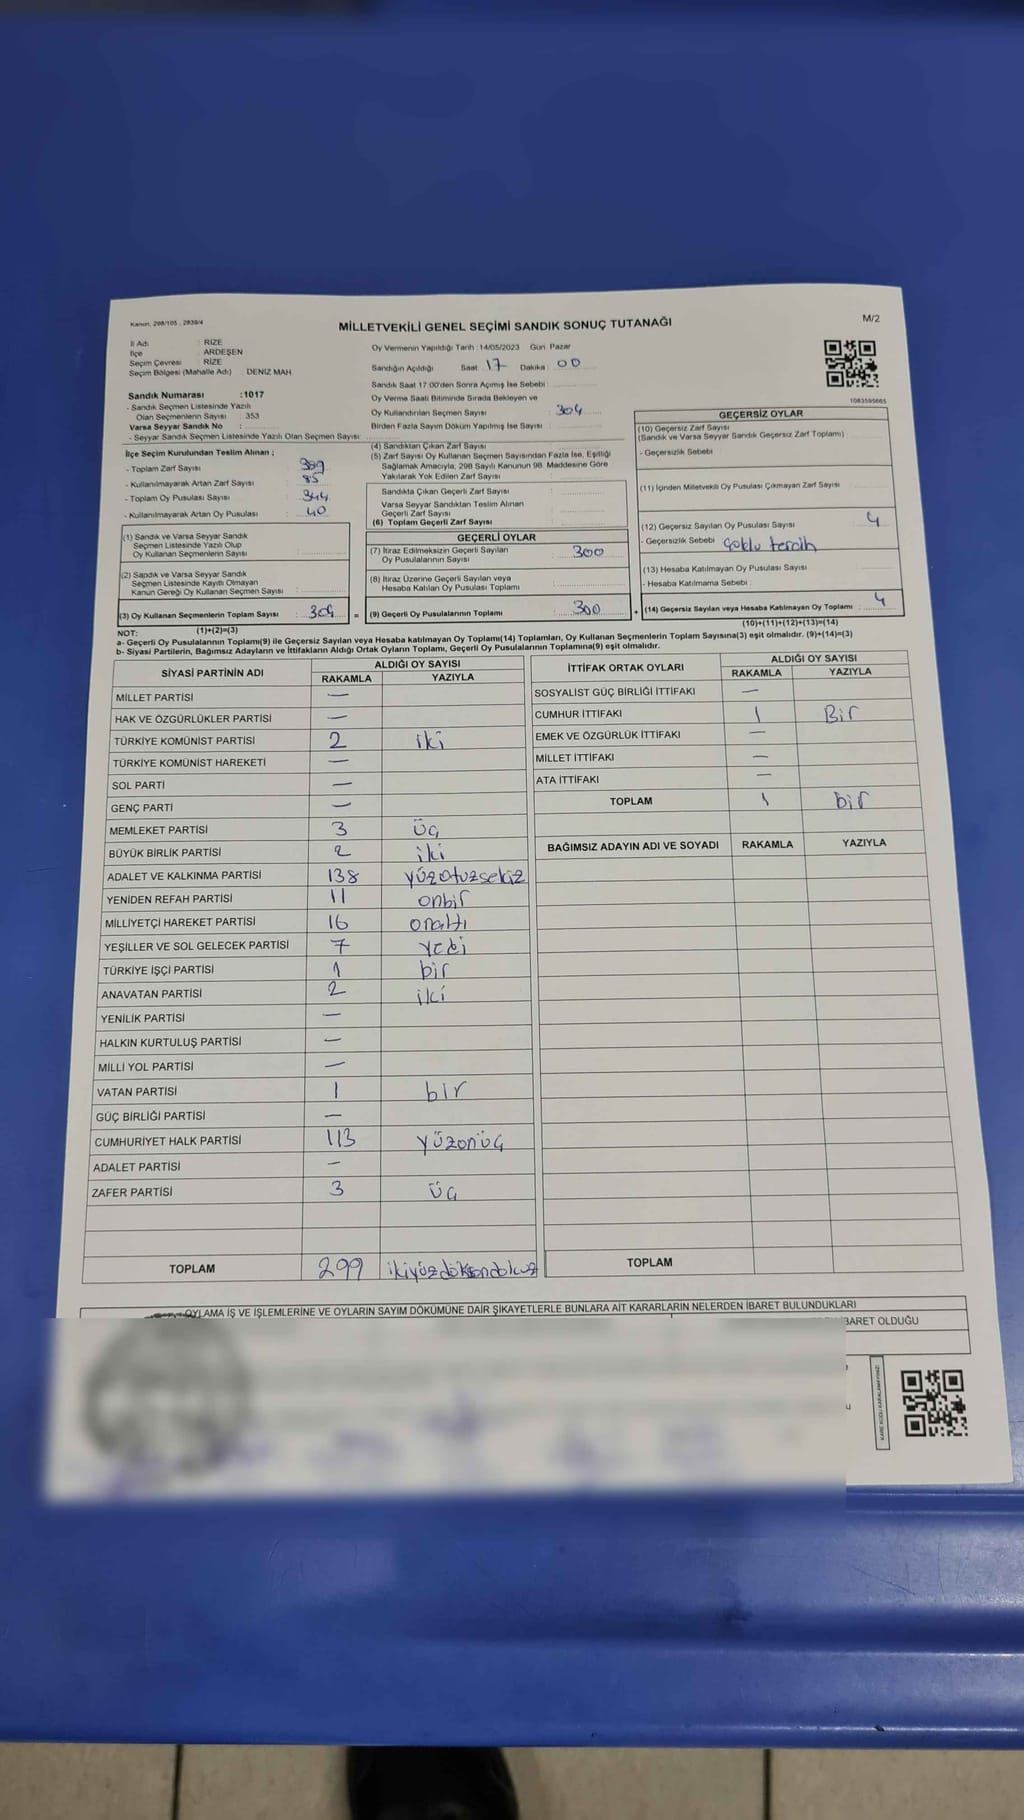 Kanun, 298/105 , 2839/4
MİLLETVEKİLİ GENEL SEÇİMİ SANDIK SONUÇ TUTANAĞI
M/2
İl Adı : RİZE
İlçe : ARDEŞEN
Seçim Çevresi : RİZE
Seçim Bölgesi (Mahalle Adı) : DENİZ MAH.
Sandık Numarası :1017
- Sandık Seçmen Listesinde Yazılı
Olan Seçmenlerin Sayısı : 353
Varsa Seyyar Sandık No :
- Seyyar Sandık Seçmen Listesinde Yazılı Olan Seçmen Sayısı:
Oy Vermenin Yapıldığı Tarih :14/05/2023 Gün: Pazar
Sandığın Açıldığı Saat: 17 Dakika: 00
Sandık Saat 17:00'den Sonra Açımış İse Sebebi :
Oy Verme Saati Bitiminde Sırada Bekleyen ve
Oy Kullandırılan Seçmen Sayısı : 304
Birden Fazla Sayım Döküm Yapılmış İse Sayısı :
1083595665
İlçe Seçim Kurulundan Teslim Alınan ;
- Toplam Zarf Sayısı : 389
- Kullanılmayarak Artan Zarf Sayısı : 85
- Toplam Oy Pusulası Sayısı : 344
- Kullanılmayarak Artan Oy Pusulası : 40
(1) Sandık ve Varsa Seyyar Sandık
Seçmen Listesinde Yazılı Olup
Oy Kullanan Seçmenlerin Sayısı :
(2) Sandık ve Varsa Seyyar Sandık
Seçmen Listesinde Kayıtlı Olmayan
Kanun Gereği Oy Kullanan Seçmen Sayısı :
(3) Oy Kullanan Seçmenlerin Toplam Sayısı : 304 =
(1)+(2)=(3)
(4) Sandıktan Çıkan Zarf Sayısı :
(5) Zarf Sayısı Oy Kullanan Seçmen Sayısından Fazla İse, Eşitliği
Sağlamak Amacıyla, 298 Sayılı Kanunun 98. Maddesine Göre
Yakılarak Yok Edilen Zarf Sayısı :
Sandıkta Çıkan Geçerli Zarf Sayısı :
Varsa Seyyar Sandıktan Teslim Alınan
Geçerli Zarf Sayısı :
(6) Toplam Geçerli Zarf Sayısı :
GEÇERLİ OYLAR
(7) İtiraz Edilmeksizin Geçerli Sayılan
Oy Pusulalarının Sayısı : 300
(8) İtiraz Üzerine Geçerli Sayılan veya
Hesaba Katılan Oy Pusulası Toplamı :
(9) Geçerli Oy Pusulalarının Toplamı : 300 +
GEÇERSİZ OYLAR
(10) Geçersiz Zarf Sayısı
(Sandık ve Varsa Seyyar Sandık Geçersiz Zarf Toplamı) :
- Geçersizlik Sebebi :
(11) İçinden Milletvekili Oy Pusulası Çıkmayan Zarf Sayısı :
(12) Geçersiz Sayılan Oy Pusulası Sayısı : 4
- Geçersizlik Sebebi : çoklu tercih
(13) Hesaba Katılmayan Oy Pusulası Sayısı :
- Hesaba Katılmama Sebebi :
(14) Geçersiz Sayılan veya Hesaba Katılmayan Oy Toplamı : 4
(10)+(11)+(12)+(13)=(14)
NOT:
a- Geçerli Oy Pusulalarının Toplamı(9) ile Geçersiz Sayılan veya Hesaba katılmayan Oy Toplamı(14) Toplamları, Oy Kullanan Seçmenlerin Toplam Sayısına(3) eşit olmalıdır. (9)+(14)=(3)
b- Siyasi Partilerin, Bağımsız Adayların ve İttifakların Aldığı Ortak Oyların Toplamı, Geçerli Oy Pusulalarının Toplamına(9) eşit olmalıdır.
SİYASİ PARTİNİN ADI ALDIĞI OY SAYISI
RAKAMLA YAZIYLA
MİLLET PARTİSİ —
HAK VE ÖZGÜRLÜKLER PARTİSİ —
TÜRKİYE KOMÜNİST PARTİSİ 2 iki
TÜRKİYE KOMÜNİST HAREKETİ —
SOL PARTİ —
GENÇ PARTİ —
MEMLEKET PARTİSİ 3 üç
BÜYÜK BİRLİK PARTİSİ 2 iki
ADALET VE KALKINMA PARTİSİ 138 yüzotuzsekiz
YENİDEN REFAH PARTİSİ 11 onbir
MİLLİYETÇİ HAREKET PARTİSİ 16 onaltı
YEŞİLLER VE SOL GELECEK PARTİSİ 7 yedi
TÜRKİYE İŞÇİ PARTİSİ 1 bir
ANAVATAN PARTİSİ 2 iki
YENİLİK PARTİSİ —
HALKIN KURTULUŞ PARTİSİ —
MİLLİ YOL PARTİSİ —
VATAN PARTİSİ 1 bir
GÜÇ BİRLİĞİ PARTİSİ —
CUMHURİYET HALK PARTİSİ 113 yüzonüç
ADALET PARTİSİ —
ZAFER PARTİSİ 3 üç
TOPLAM 299 ikiyüzdoksandokuz
İTTİFAK ORTAK OYLARI ALDIĞI OY SAYISI
RAKAMLA YAZIYLA
SOSYALİST GÜÇ BİRLİĞİ İTTİFAKI —
CUMHUR İTTİFAKI 1 Bir
EMEK VE ÖZGÜRLÜK İTTİFAKI —
MİLLET İTTİFAKI —
ATA İTTİFAKI —
TOPLAM 1 bir
BAĞIMSIZ ADAYIN ADI VE SOYADI RAKAMLA YAZIYLA
TOPLAM
OYLAMA İŞ VE İŞLEMLERİNE VE OYLARIN SAYIM DÖKÜMÜNE DAİR ŞİKAYETLERLE BUNLARA AİT KARARLARIN NELERDEN İBARET BULUNDUKLARI
İBARET OLDUĞU
KARE KODU KARALAMAYINIZ!